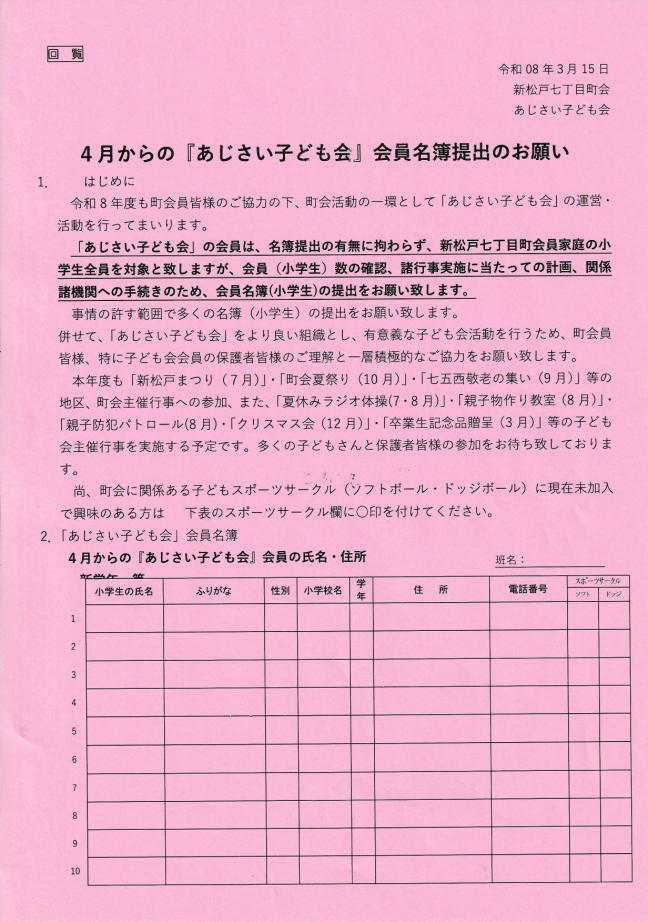 回 覧
令和 08 年 3 月 15 日
新松戸七丁目町会
あじさい子ども会
4 月からの『あじさい子ども会』会員名簿提出のお願い
1. はじめに
令和 8 年度も町会員皆様のご協力の下、町会活動の一環として「あじさい子ども会」の運営・
活動を行ってまいります。
「あじさい子ども会」の会員は、名簿提出の有無に拘わらず、新松戸七丁目町会員家庭の小
学生全員を対象と致しますが、会員（小学生）数の確認、諸行事実施に当たっての計画、関係
諸機関への手続きのため、会員名簿(小学生)の提出をお願い致します。
事情の許す範囲で多くの名簿（小学生）の提出をお願い致します。
併せて、「あじさい子ども会」をより良い組織とし、有意義な子ども会活動を行うため、町会員
皆様、特に子ども会会員の保護者皆様のご理解と一層積極的なご協力をお願い致します。
本年度も「新松戸まつり（７月）」・「町会夏祭り（10 月）」・「七五西敬老の集い（9 月）」等の
地区、町会主催行事への参加、また、「夏休みラジオ体操(7・8 月)」・「親子物作り教室（8 月）」・
「親子防犯パトロール(8 月)・「クリスマス会（12 月）」・「卒業生記念品贈呈（3 月）」等の子ども
会主催行事を実施する予定です。多くの子どもさんと保護者皆様の参加をお待ち致しておりま
す。
尚、町会に関係ある子どもスポーツサークル（ソフトボール・ドッジボール）に現在未加入
で興味のある方は 下表のスポーツサークル欄に〇印を付けてください。
2. 「あじさい子ども会」会員名簿
4 月からの『あじさい子ども会』会員の氏名・住所
班名：
新学年 等
小学生の氏名 ふりがな 性別 小学校名 学年 住 所 電話番号 スポーツサークル
ソフト ドッジ
1
2
3
4
5
6
7
8
9
10